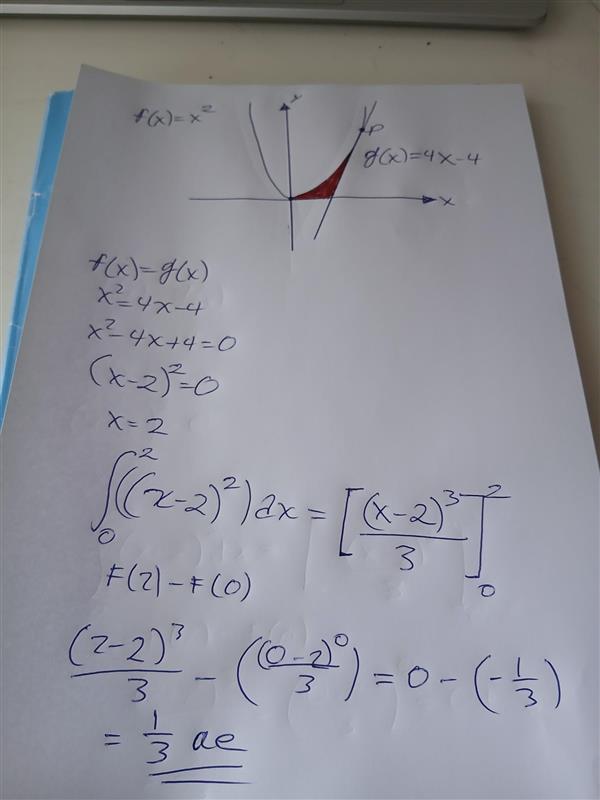 y
f(x)=x²
P
g(x)=4x-4
x
f(x)=g(x)
x²=4x-4
x²-4x+4=0
(x-2)²=0
x=2
∫₀²((x-2)²)dx=[(x-2)³/3]₀²
F(2)-F(0)
(2-2)³/3-((0-2)⁰/3)=0-(-1/3)
=1/3 ae